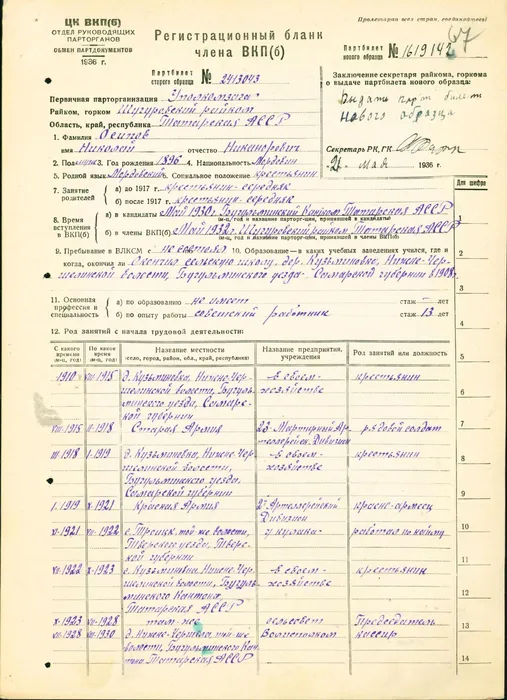 Пролетарии всех стран, соединяйтесь!
ЦК ВКП(б)
ОТДЕЛ РУКОВОДЯЩИХ
ПАРТОРГАНОВ
ОБМЕН ПАРТДОКУМЕНТОВ
1936 г.
Регистрационный бланк
члена ВКП(б)
Партбилет
нового образца № 1619142
67
Партбилет
старого образца № 2413043
Заключение секретаря райкома, горкома
о выдаче партбилета нового образца:
Выдать парт билет
нового образца
Секретарь РК, ГК
21 мая 1936 г.
Первичная парторганизация Уполкомзага
Райком, горком Шугуровский райком
Область, край, республика Татарская АССР
1. Фамилия Осипов
имя Николай отчество Никанорович
2. Пол муж 3. Год рождения 1896 4. Национальность Мордвин
5. Родной язык Мордовский Социальное положение крестьянин
7. Занятие родителей
а) до 1917 г. крестьяни-середняк
б) после 1917 г. крестьяни-середняк
8. Время вступления в ВКП(б)
а) в кандидаты Май 1930 г. Бугульминский Кантком Татарская АССР
(м-ц, год и название парторг-ции, принявшей в кандидаты)
б) в члены ВКП(б) Май 1932 г. Шугуровский райком Татарская АССР
(м-ц, год и название парторг-ции, принявшей в члены ВКП(б)
9. Пребывание в ВЛКСМ с не состоял 10. Образование – в каких учебных заведениях учился, где и
когда, окончил ли Окончил сельскую школу, дер. Кузьминовка, Нижне-Чер-
шелинской волости, Бугульминского уезда Самарской губернии в 1908 г.
11. Основная профессия и специальность
а) по образованию не имеет стаж — лет
б) по опыту работы советский работник стаж 13 лет
12. Род занятий с начала трудовой деятельности:
Для шифра
С какого времени (м-ц, год)
По какое время (м-ц, год)
Название местности
(село, город, район, обл., край, республика)
Название предприятия, учреждения
Род занятий или должность
1910 VIII-1915 д. Кузьминовка, Нижне-Чер-
шелинской волости, Бугуль-
минского уезда, Самарс-
кой губернии
в своем
хозяйстве
крестьянин
VIII-1915 II-1918 Старая Армия
23-Мартирный Ар-
тиллерийск. Дивизион
рядовой солдат
III-1918 I-1919 д. Кузьминовка, Нижне-Чер-
шелинской волости,
Бугульминского уезда
Самарской губернии
в своем
хозяйстве
крестьянин
I-1919 X-1921 Красная Армия
2й Артиллерийский
Дивизион
красно-армеец
XI-1921 1922 с. Троицк. той же волости,
Тверского уезда, Тверс-
кой губернии
у кулака
работал по найму
1922 X-1923 с. Кузьминовка, Нижне-Чер-
шелинской волости, Бугуль-
минского Кантона,
Татарская АССР
в своем
хозяйстве
крестьянин
X-1923 VII-1928 там-же
сельсовет
Председатель
VII-1928 VII-1930 д. Нижне-Чершила той-же
волости, Бугульминского Кан-
тона Татарская АССР
Волисполком
кассир
2
3
4
5
6
7
8
9
10
11
12
13
14